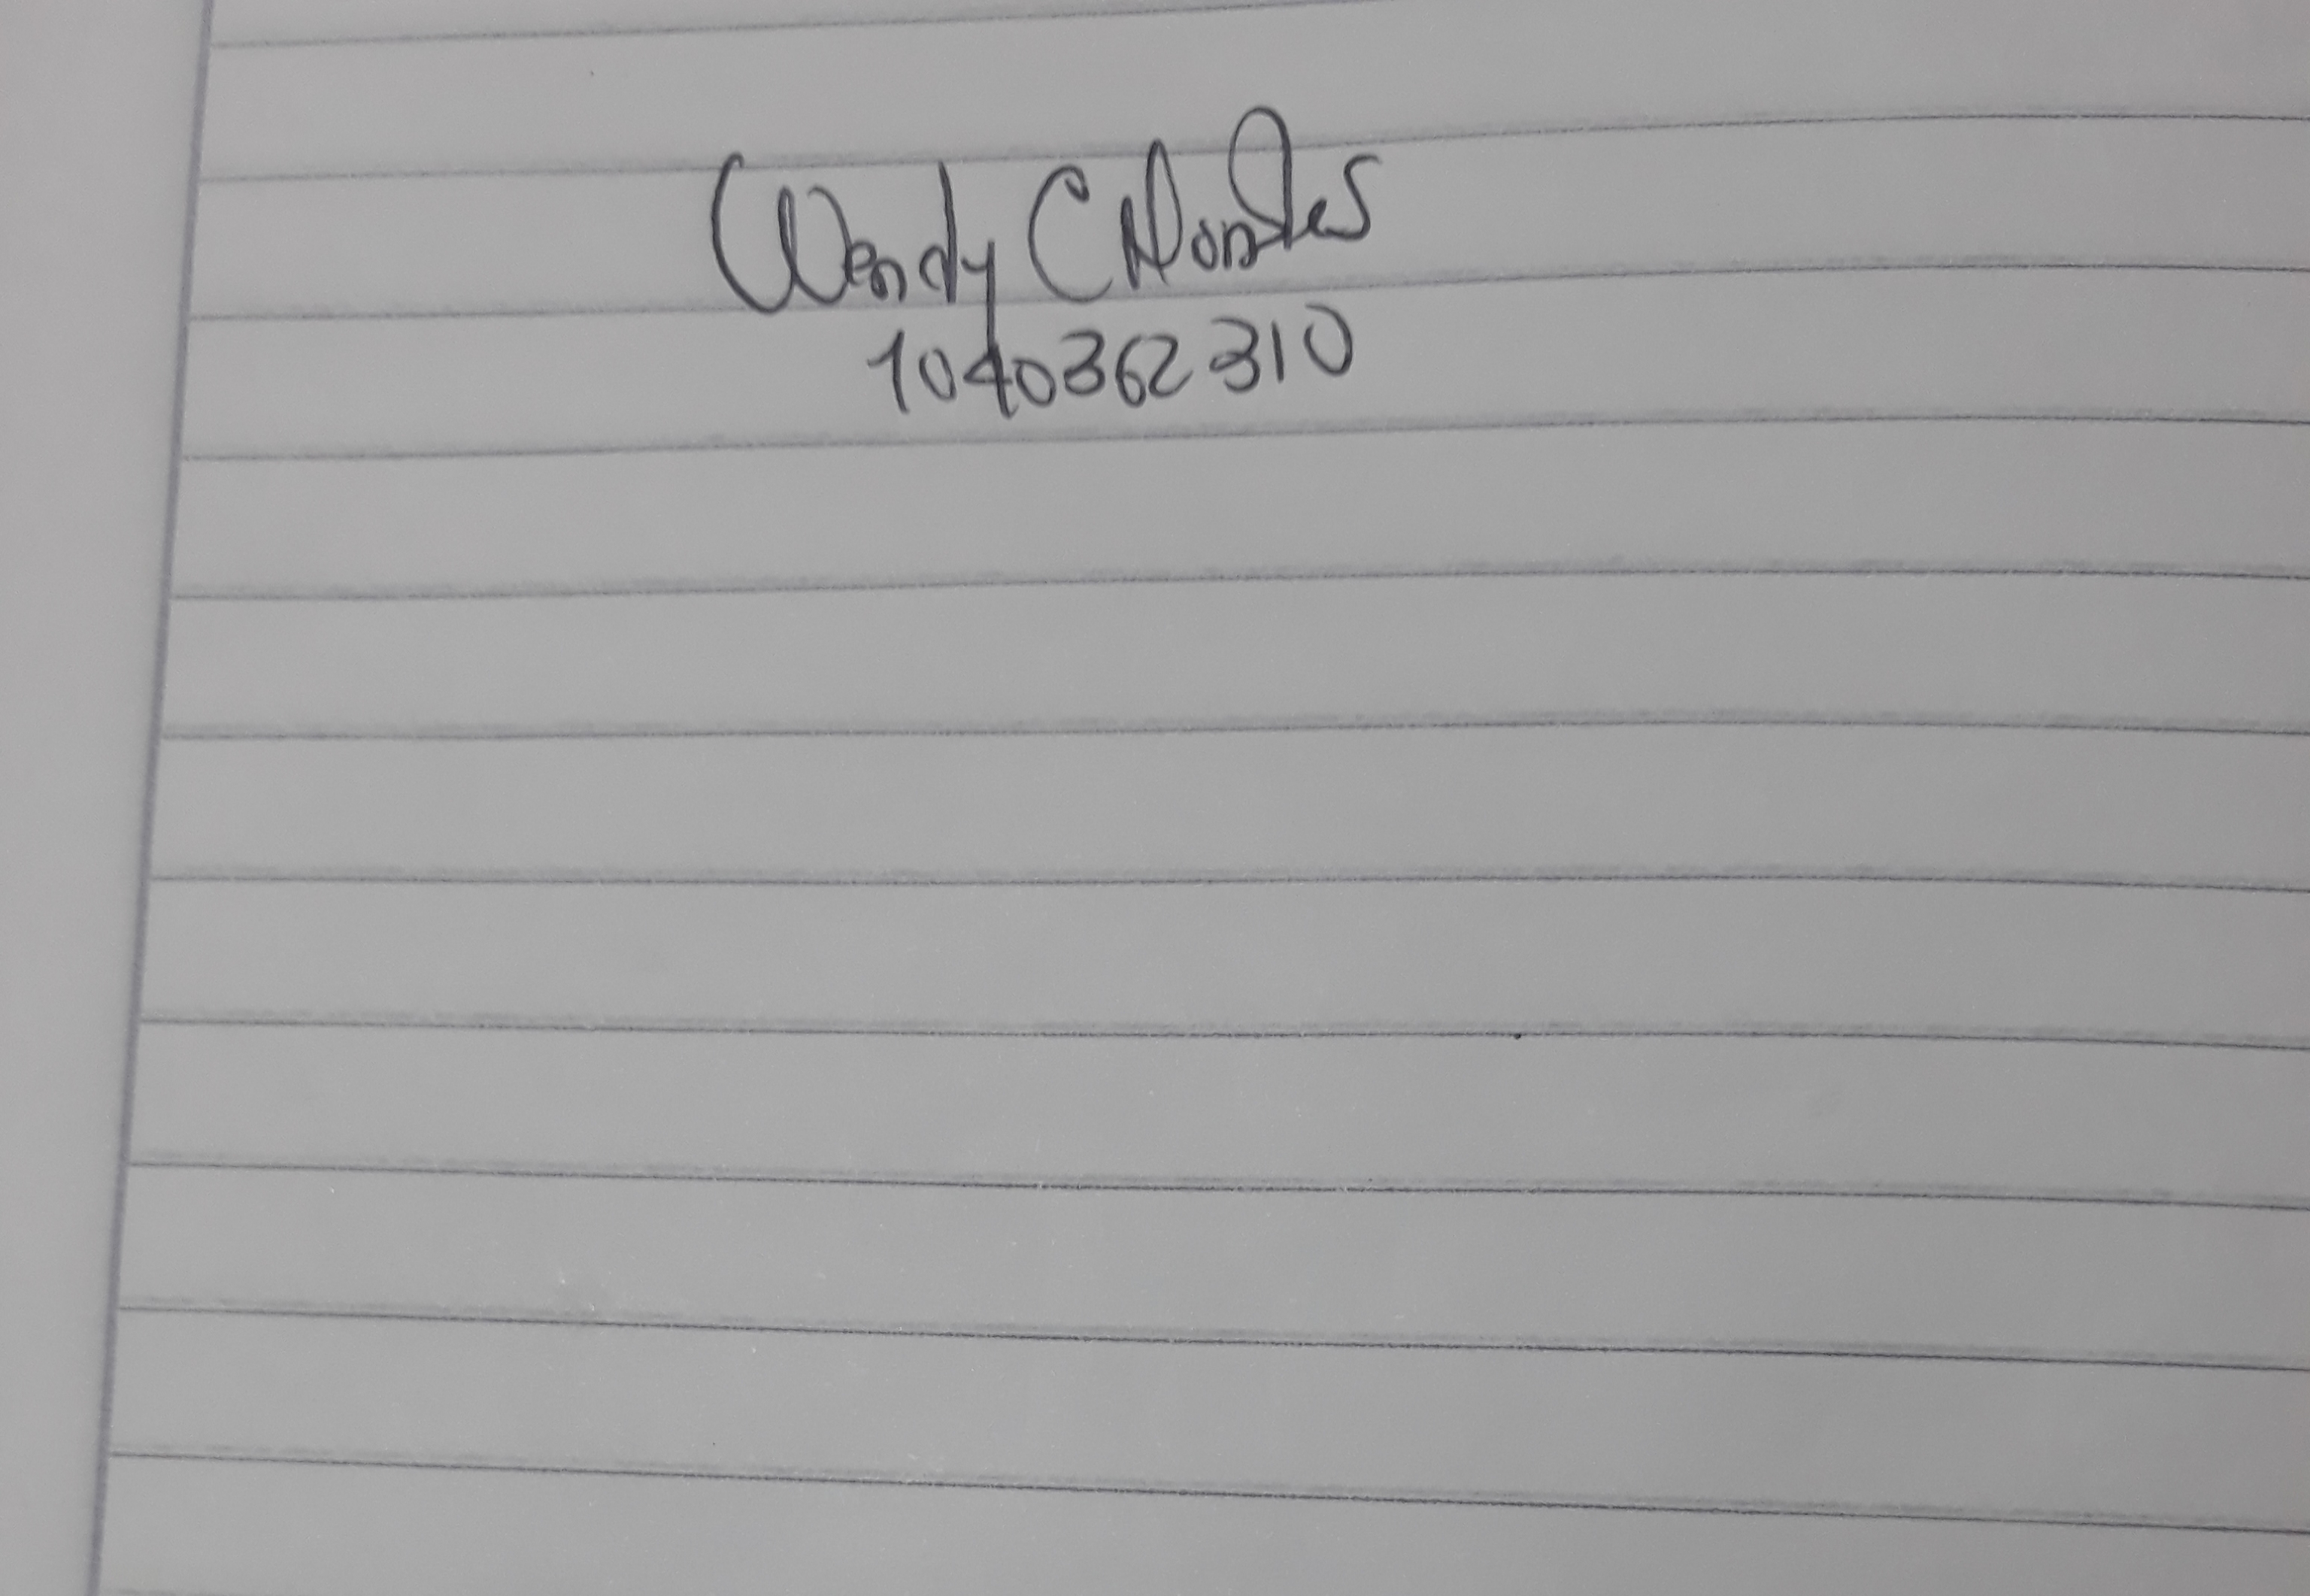 Wendy C Montes
1040362310